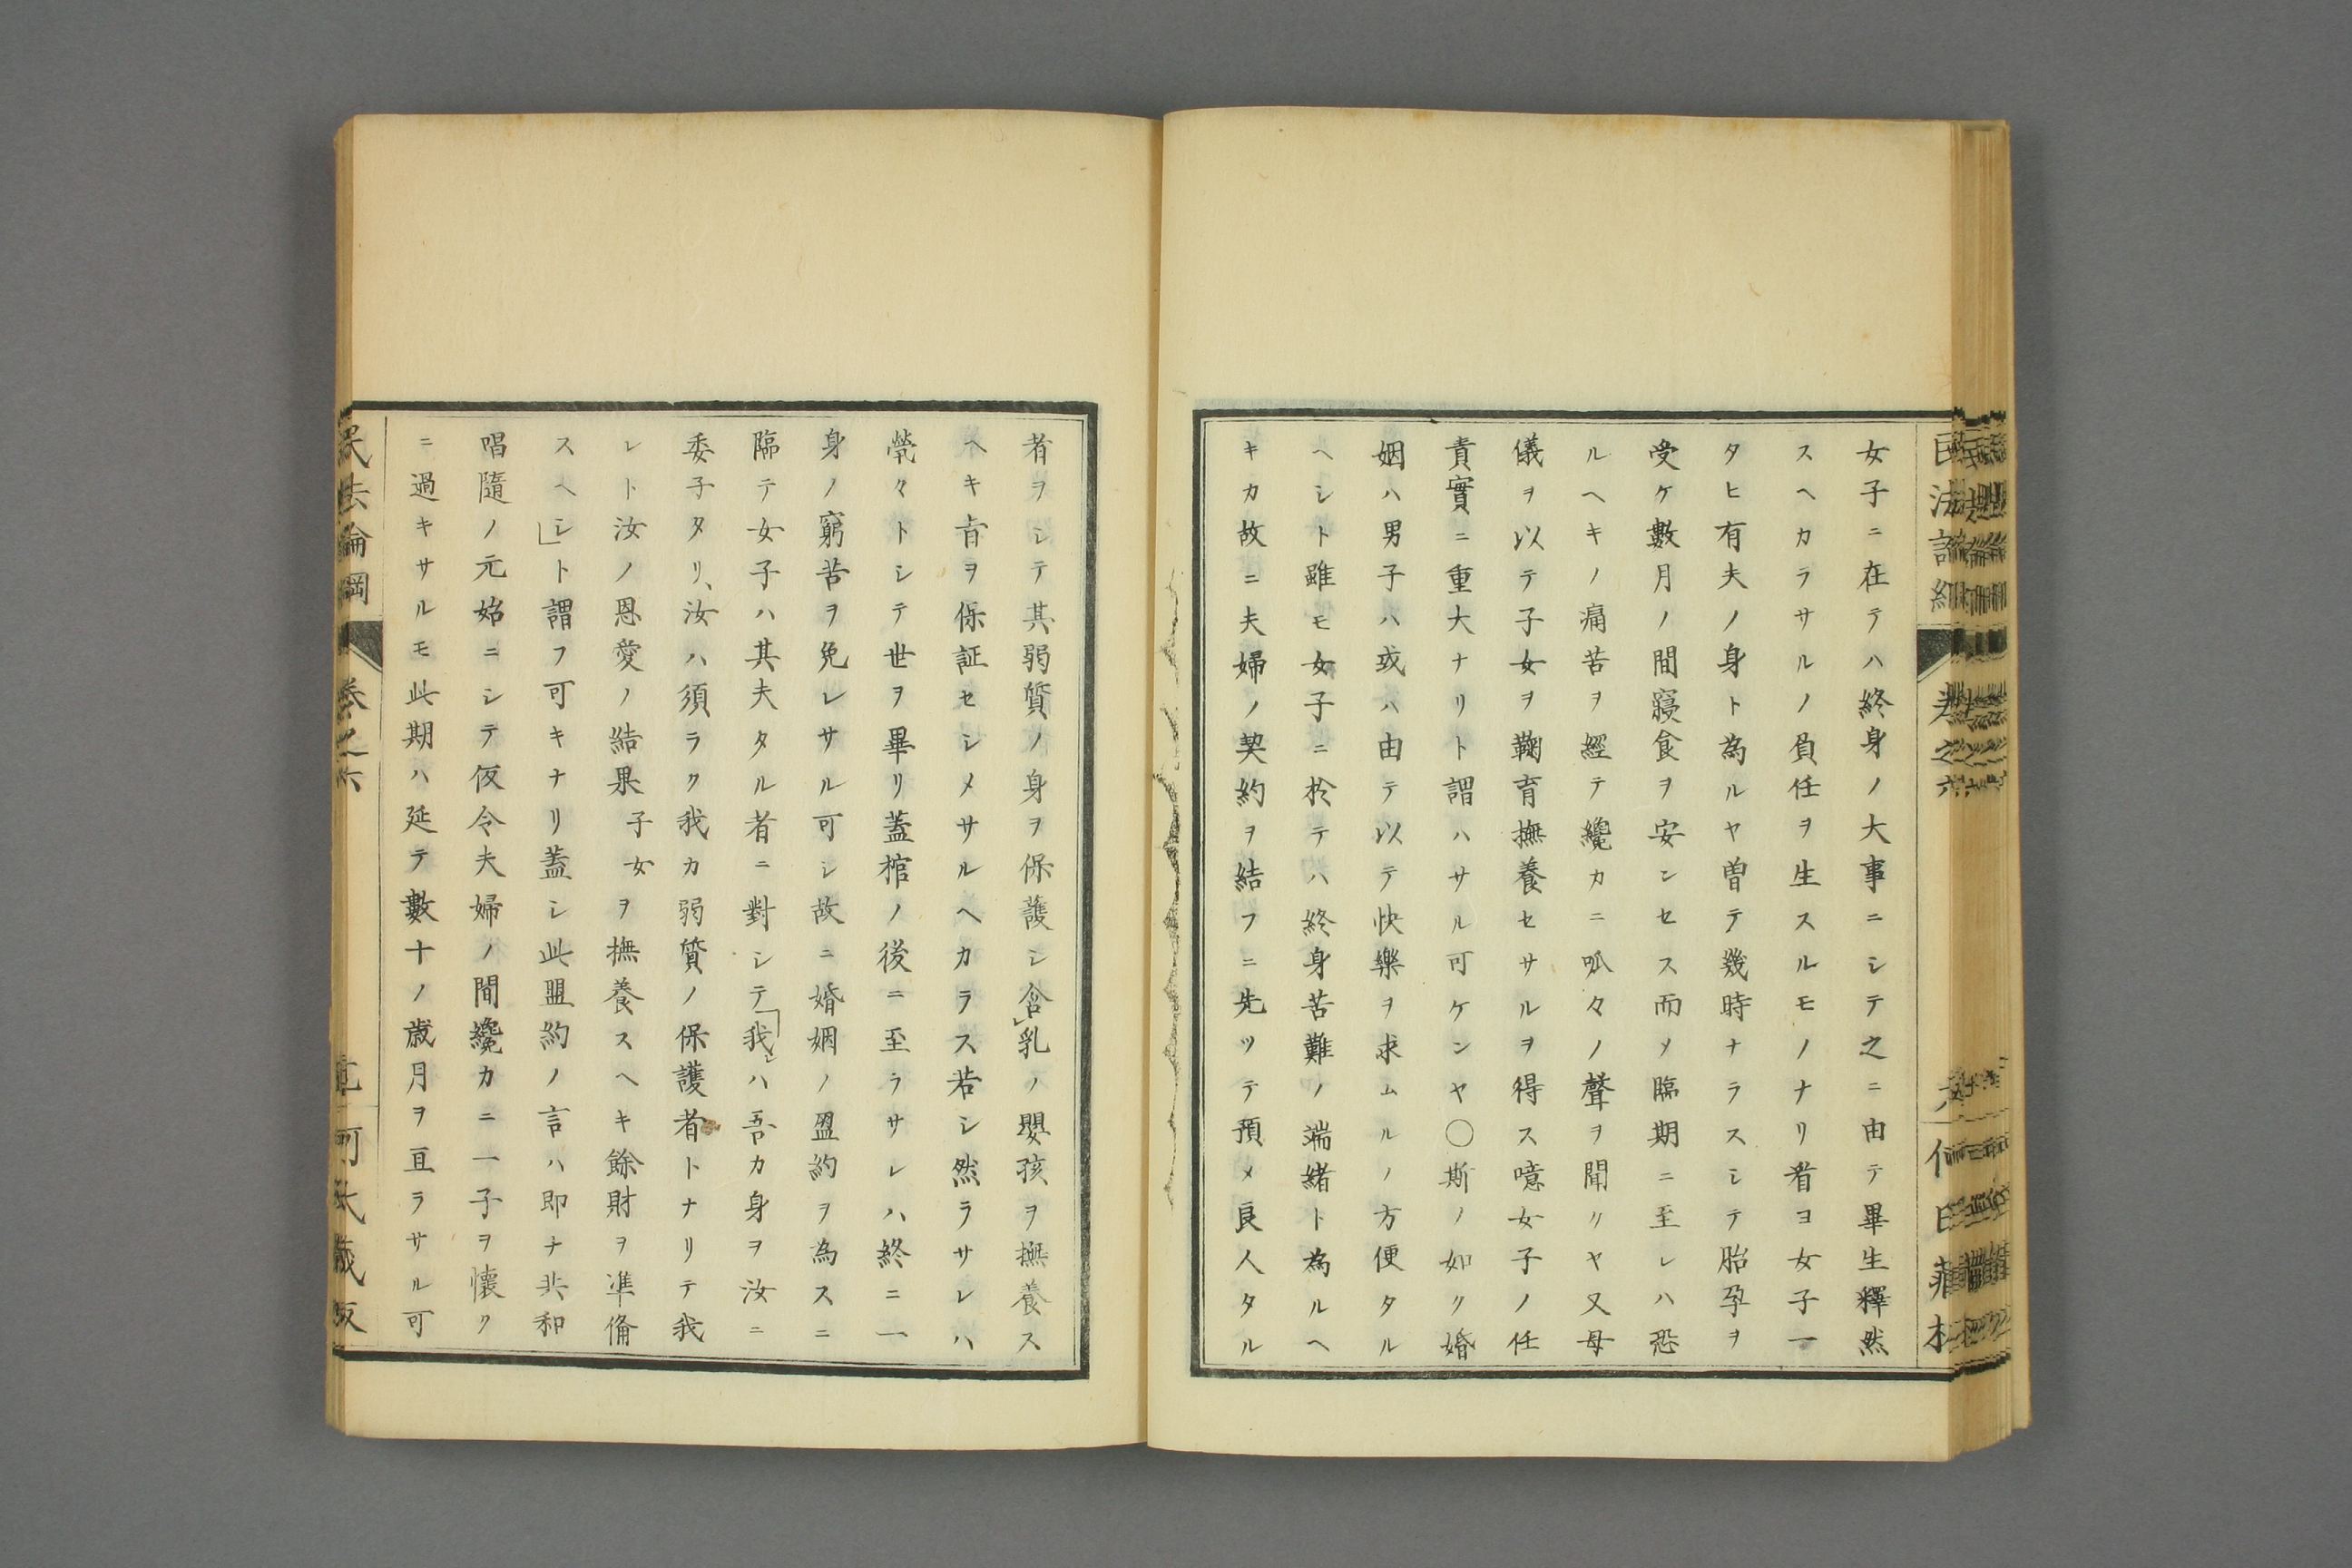 女子ニ在テハ終身ノ大事ニシテ之ニ由テ畢生釋然
スヘカラサルノ負任ヲ生スルモノナリ看ヨ女子一
タヒ有夫ノ身ト為ルヤ曽テ幾時ナラスシテ胎孕ヲ
受ケ數月ノ間寢食ヲ安ンセス而メ臨期ニ至レハ恐
ルヘキノ痛苦ヲ經テ纔カニ呱々ノ聲ヲ聞クヤ又母
儀ヲ以テ子女ヲ鞠育撫養セサルヲ得ス噫女子ノ任
責實ニ重大ナリト謂ハサル可ケンヤ〇斯ノ如ク婚
姻ハ男子ハ或ハ由テ以テ快樂ヲ求ムルノ方便タル
ヘシト雖モ女子ニ於テハ終身苦難ノ端緒ト為ルヘ
キカ故ニ夫婦ノ契約ヲ結フニ先ツテ預メ良人タル
者ヲシテ其弱質ノ身ヲ保護シ含乳ノ嬰孩ヲ撫養ス
ヘキ旨ヲ保証セシメサルヘカラス若シ然ラサレハ
煢々トシテ世ヲ畢リ蓋棺ノ後ニ至ラサレハ終ニ一
身ノ窮苦ヲ免レサル可シ故ニ婚姻ノ盟約ヲ為スニ
臨テ女子ハ其夫タル者ニ對シテ「我レハ吾カ身ヲ汝ニ
委子タリ、汝ハ須ラク我カ弱質ノ保護者トナリテ我
レト汝ノ恩愛ノ結果子女ヲ撫養スヘキ餘財ヲ準備
スヘシ」ト謂フ可キナリ蓋シ此盟約ノ言ハ即ナ共和
唱隨ノ元始ニシテ仮令夫婦ノ間纔カニ一子ヲ懷ク
ニ過キサルモ此期ハ延テ數十ノ歳月ヲ亘ラサル可
民法論綱 巻之六 何氏蔵版